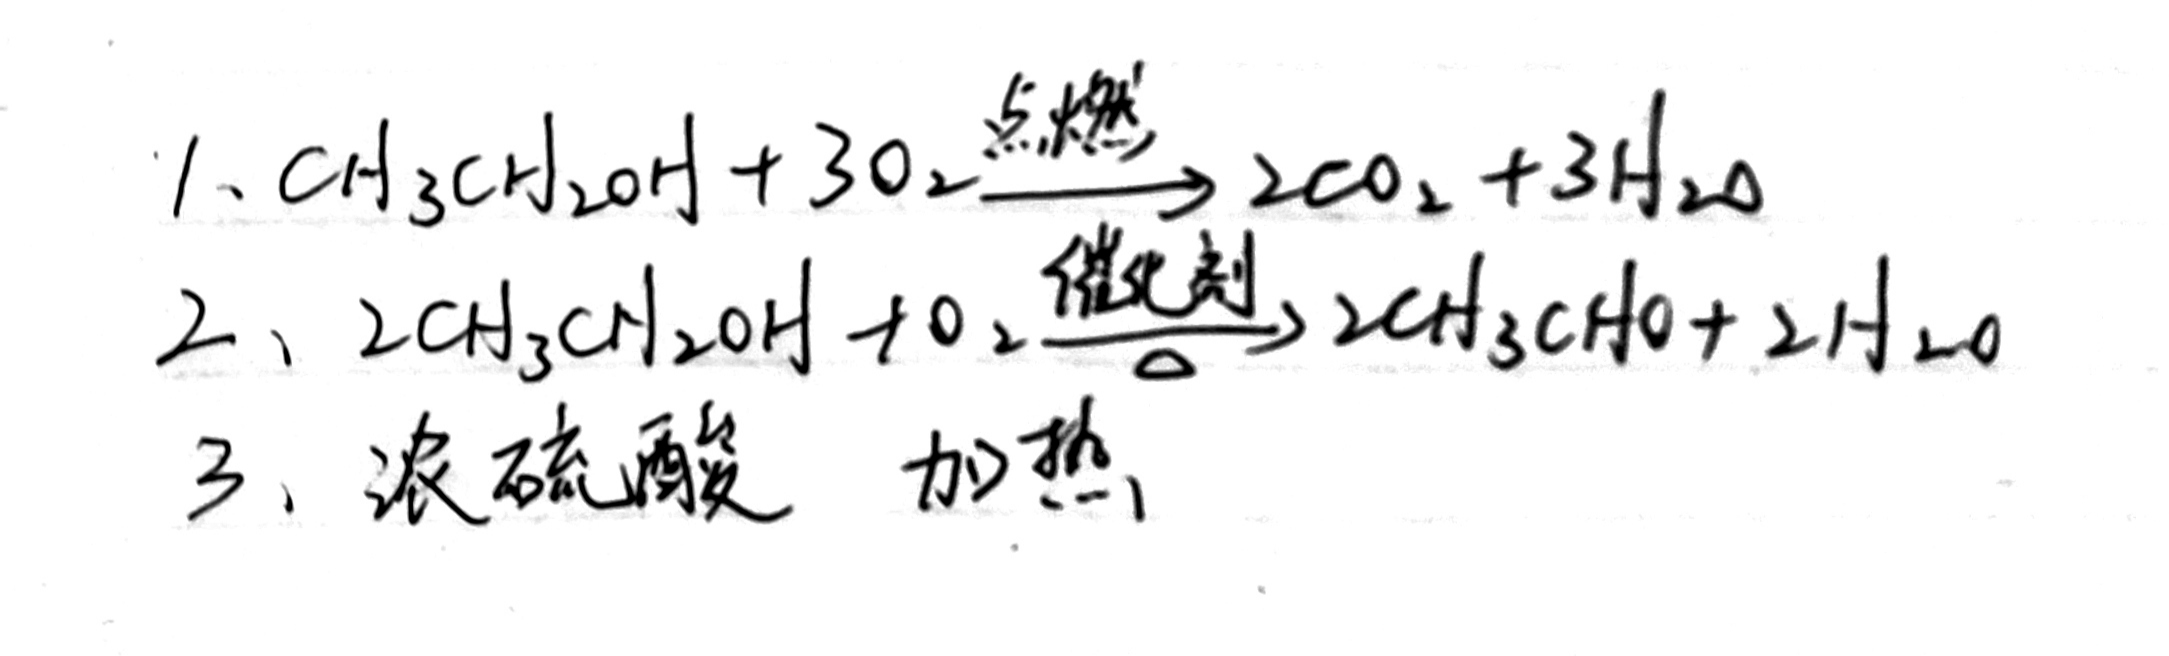 1、CH₃CH₂OH + 3O₂ 点燃→ 2CO₂ + 3H₂O
2、2CH₃CH₂OH + O₂ 催化剂→△ 2CH₃CHO + 2H₂O
3、浓硫酸 加热